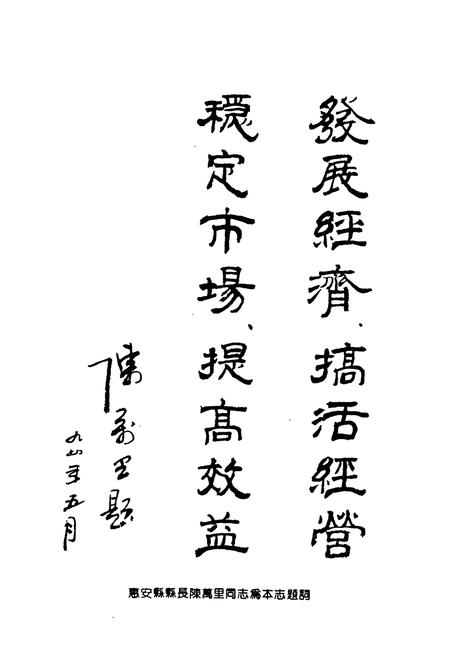 發展經濟、搞活經營
穩定市場、提高效益
陳萬里題
九一年五月
惠安縣縣長陳萬里同志為本志題詞